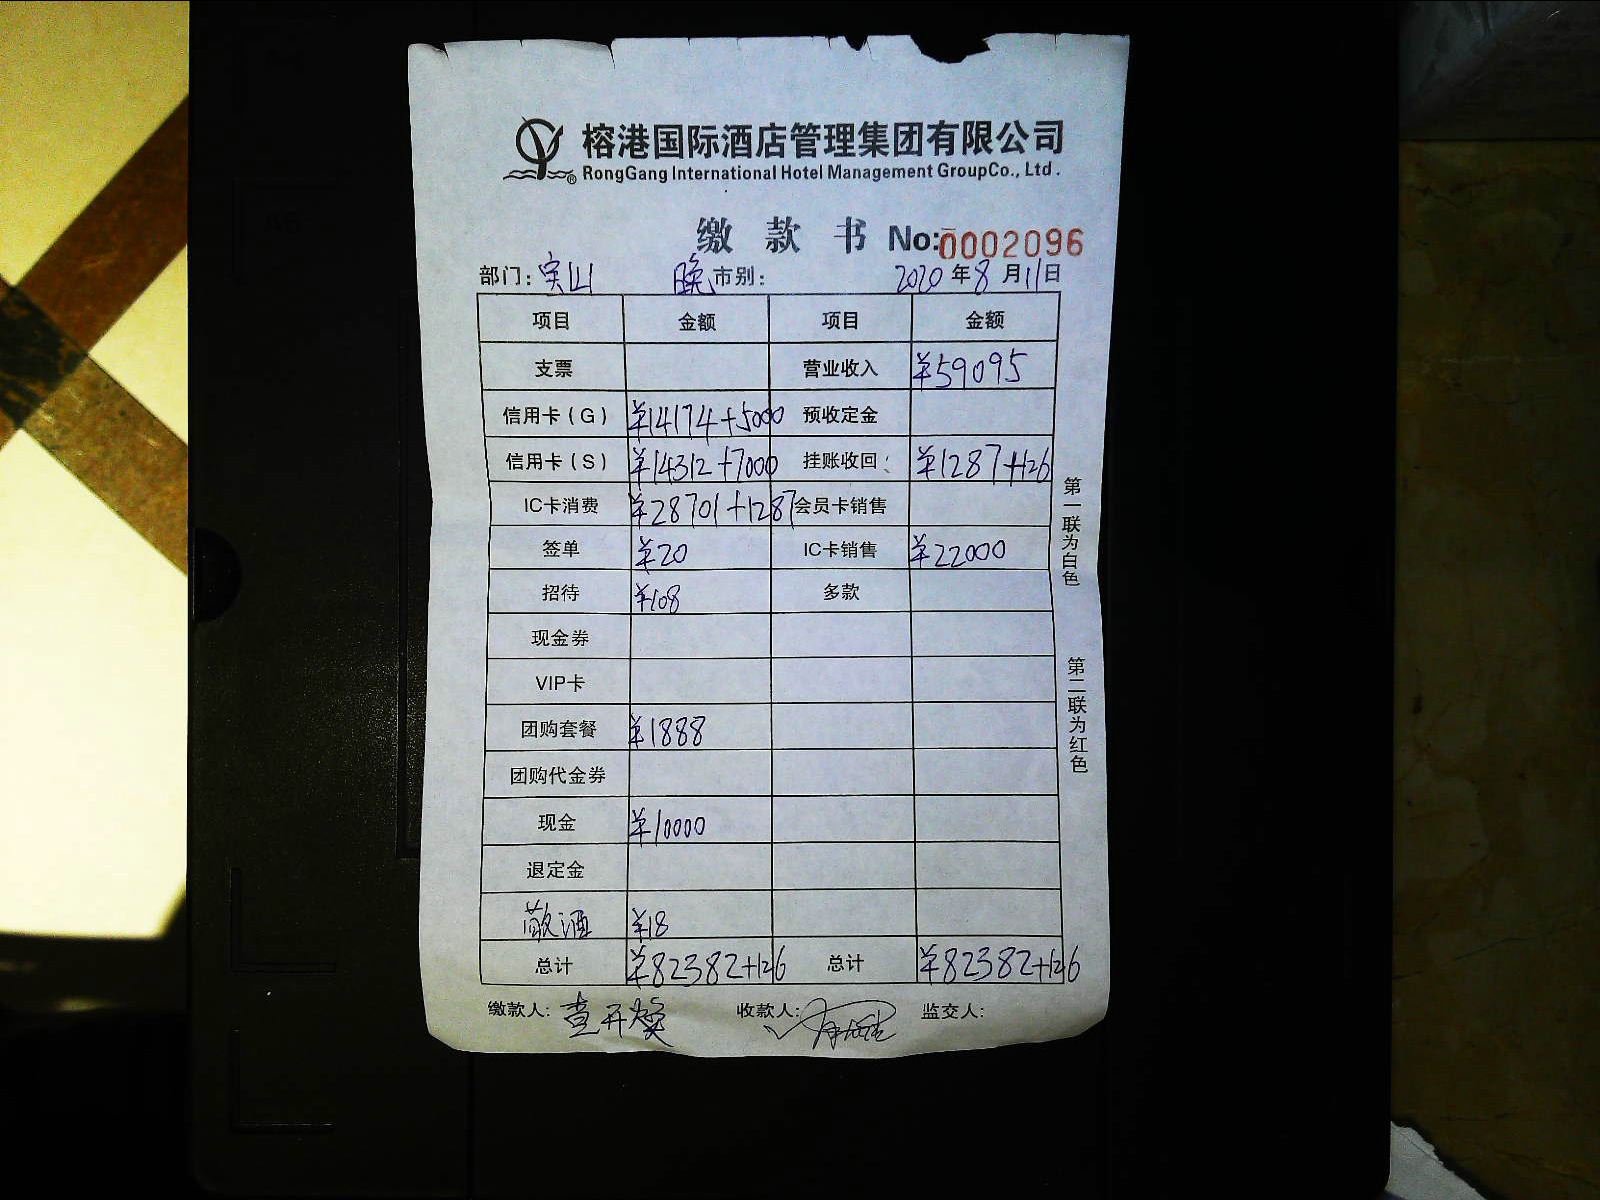 榕港国际酒店管理集团有限公司
RongGang International Hotel Management GroupCo., Ltd.
缴款书 No:0002096
部门: 宝山 晚市别: 2020年8月11日
项目 金额 项目 金额
支票 营业收入 ¥59095
信用卡(G) ¥14174+5000 预收定金
信用卡(S) ¥14312+7000 挂账收回: ¥1287+126
IC卡消费 ¥28701+1287 会员卡销售
签单 ¥20 IC卡销售 ¥22000
招待 ¥108 多款
现金券
VIP卡
团购套餐 ¥1888
团购代金券
现金 ¥10000
退定金
敬酒 ¥18
总计 ¥82382+126 总计 ¥82382+126
缴款人: 查开 收款人: 监交人:
第一联为白色
第二联为红色